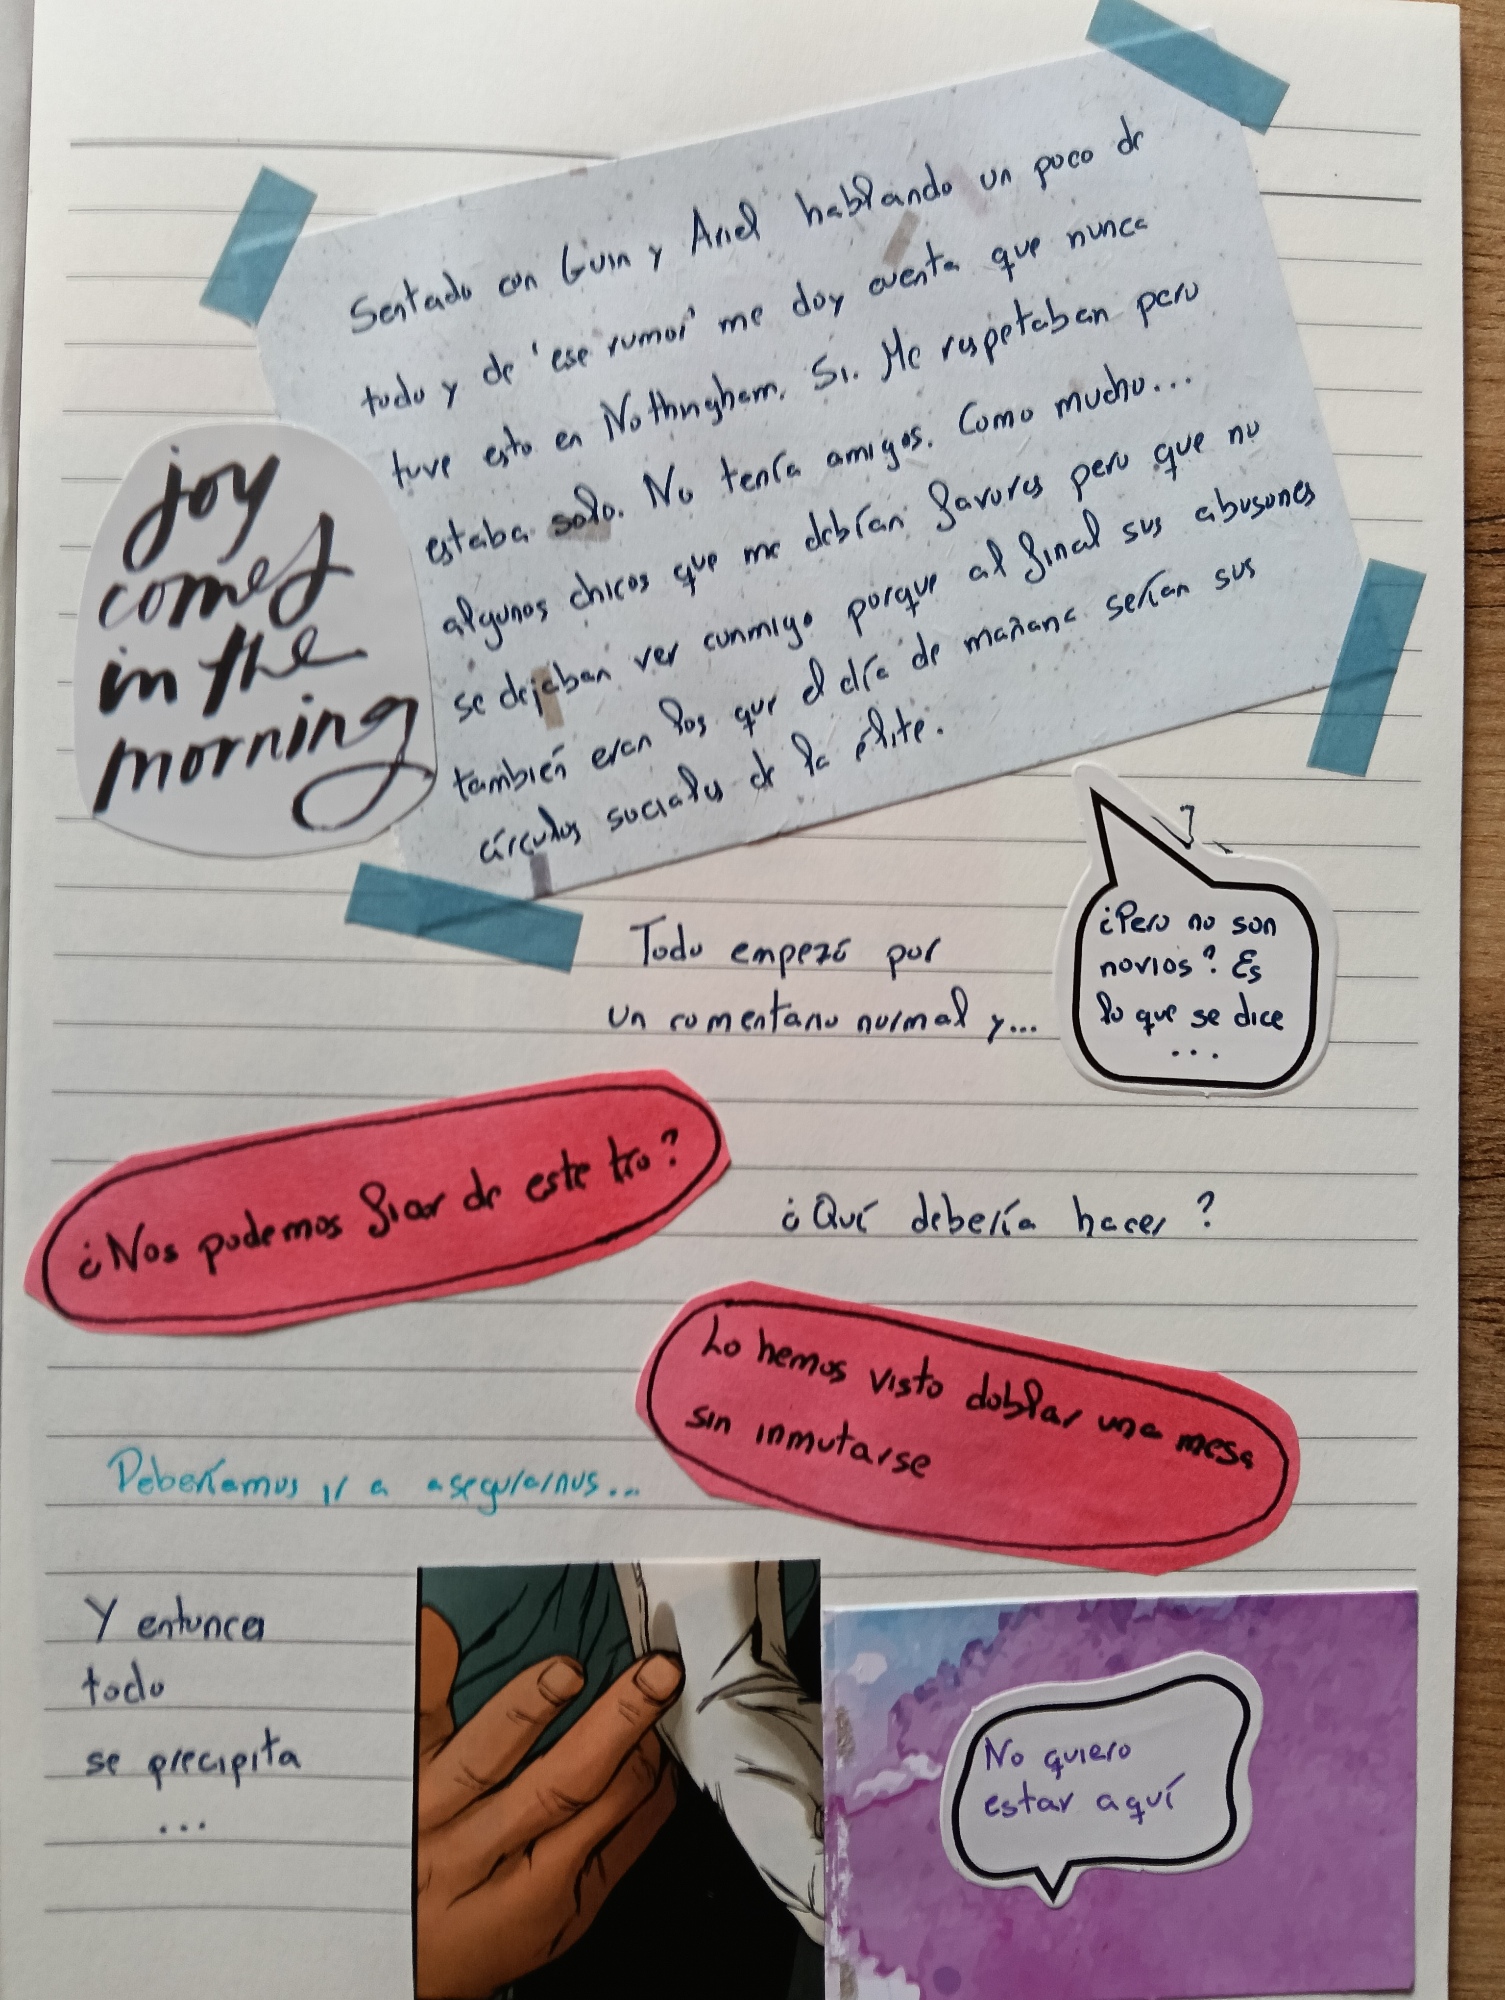 Sentado con Guin y Ariel hablando un poco de
todo y de 'ese rumor' me doy cuenta que nunca
tuve esto en Nothingham. Sí. Me respetaban pero
estaba solo. No tenía amigos. Como mucho...
algunos chicos que me debían favores pero que no
se dejaban ver conmigo porque al final sus abusones
también eran los que el día de mañana serían sus
círculos sociales de la élite.
joy
comes
in the
morning
¿Pero no son
novios? Es
lo que se dice
...
Todo empezó por
un comentario normal y...
¿Nos podemos fiar de este tío?
¿Qué debería hacer?
Lo hemos visto doblar una mesa
sin inmutarse
Deberíamos ir a asegurarnos...
Y entonces
todo
se precipita
...
No quiero
estar aquí